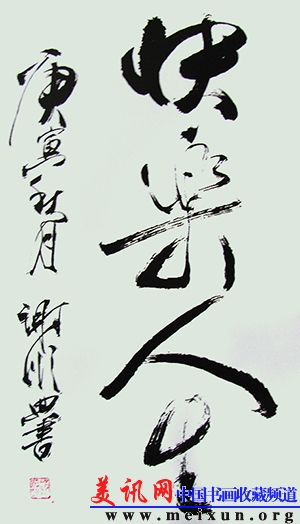 快樂人生
庚寅秋月 謝順 書
美讯网 中国书画收藏频道
www.meixun.org